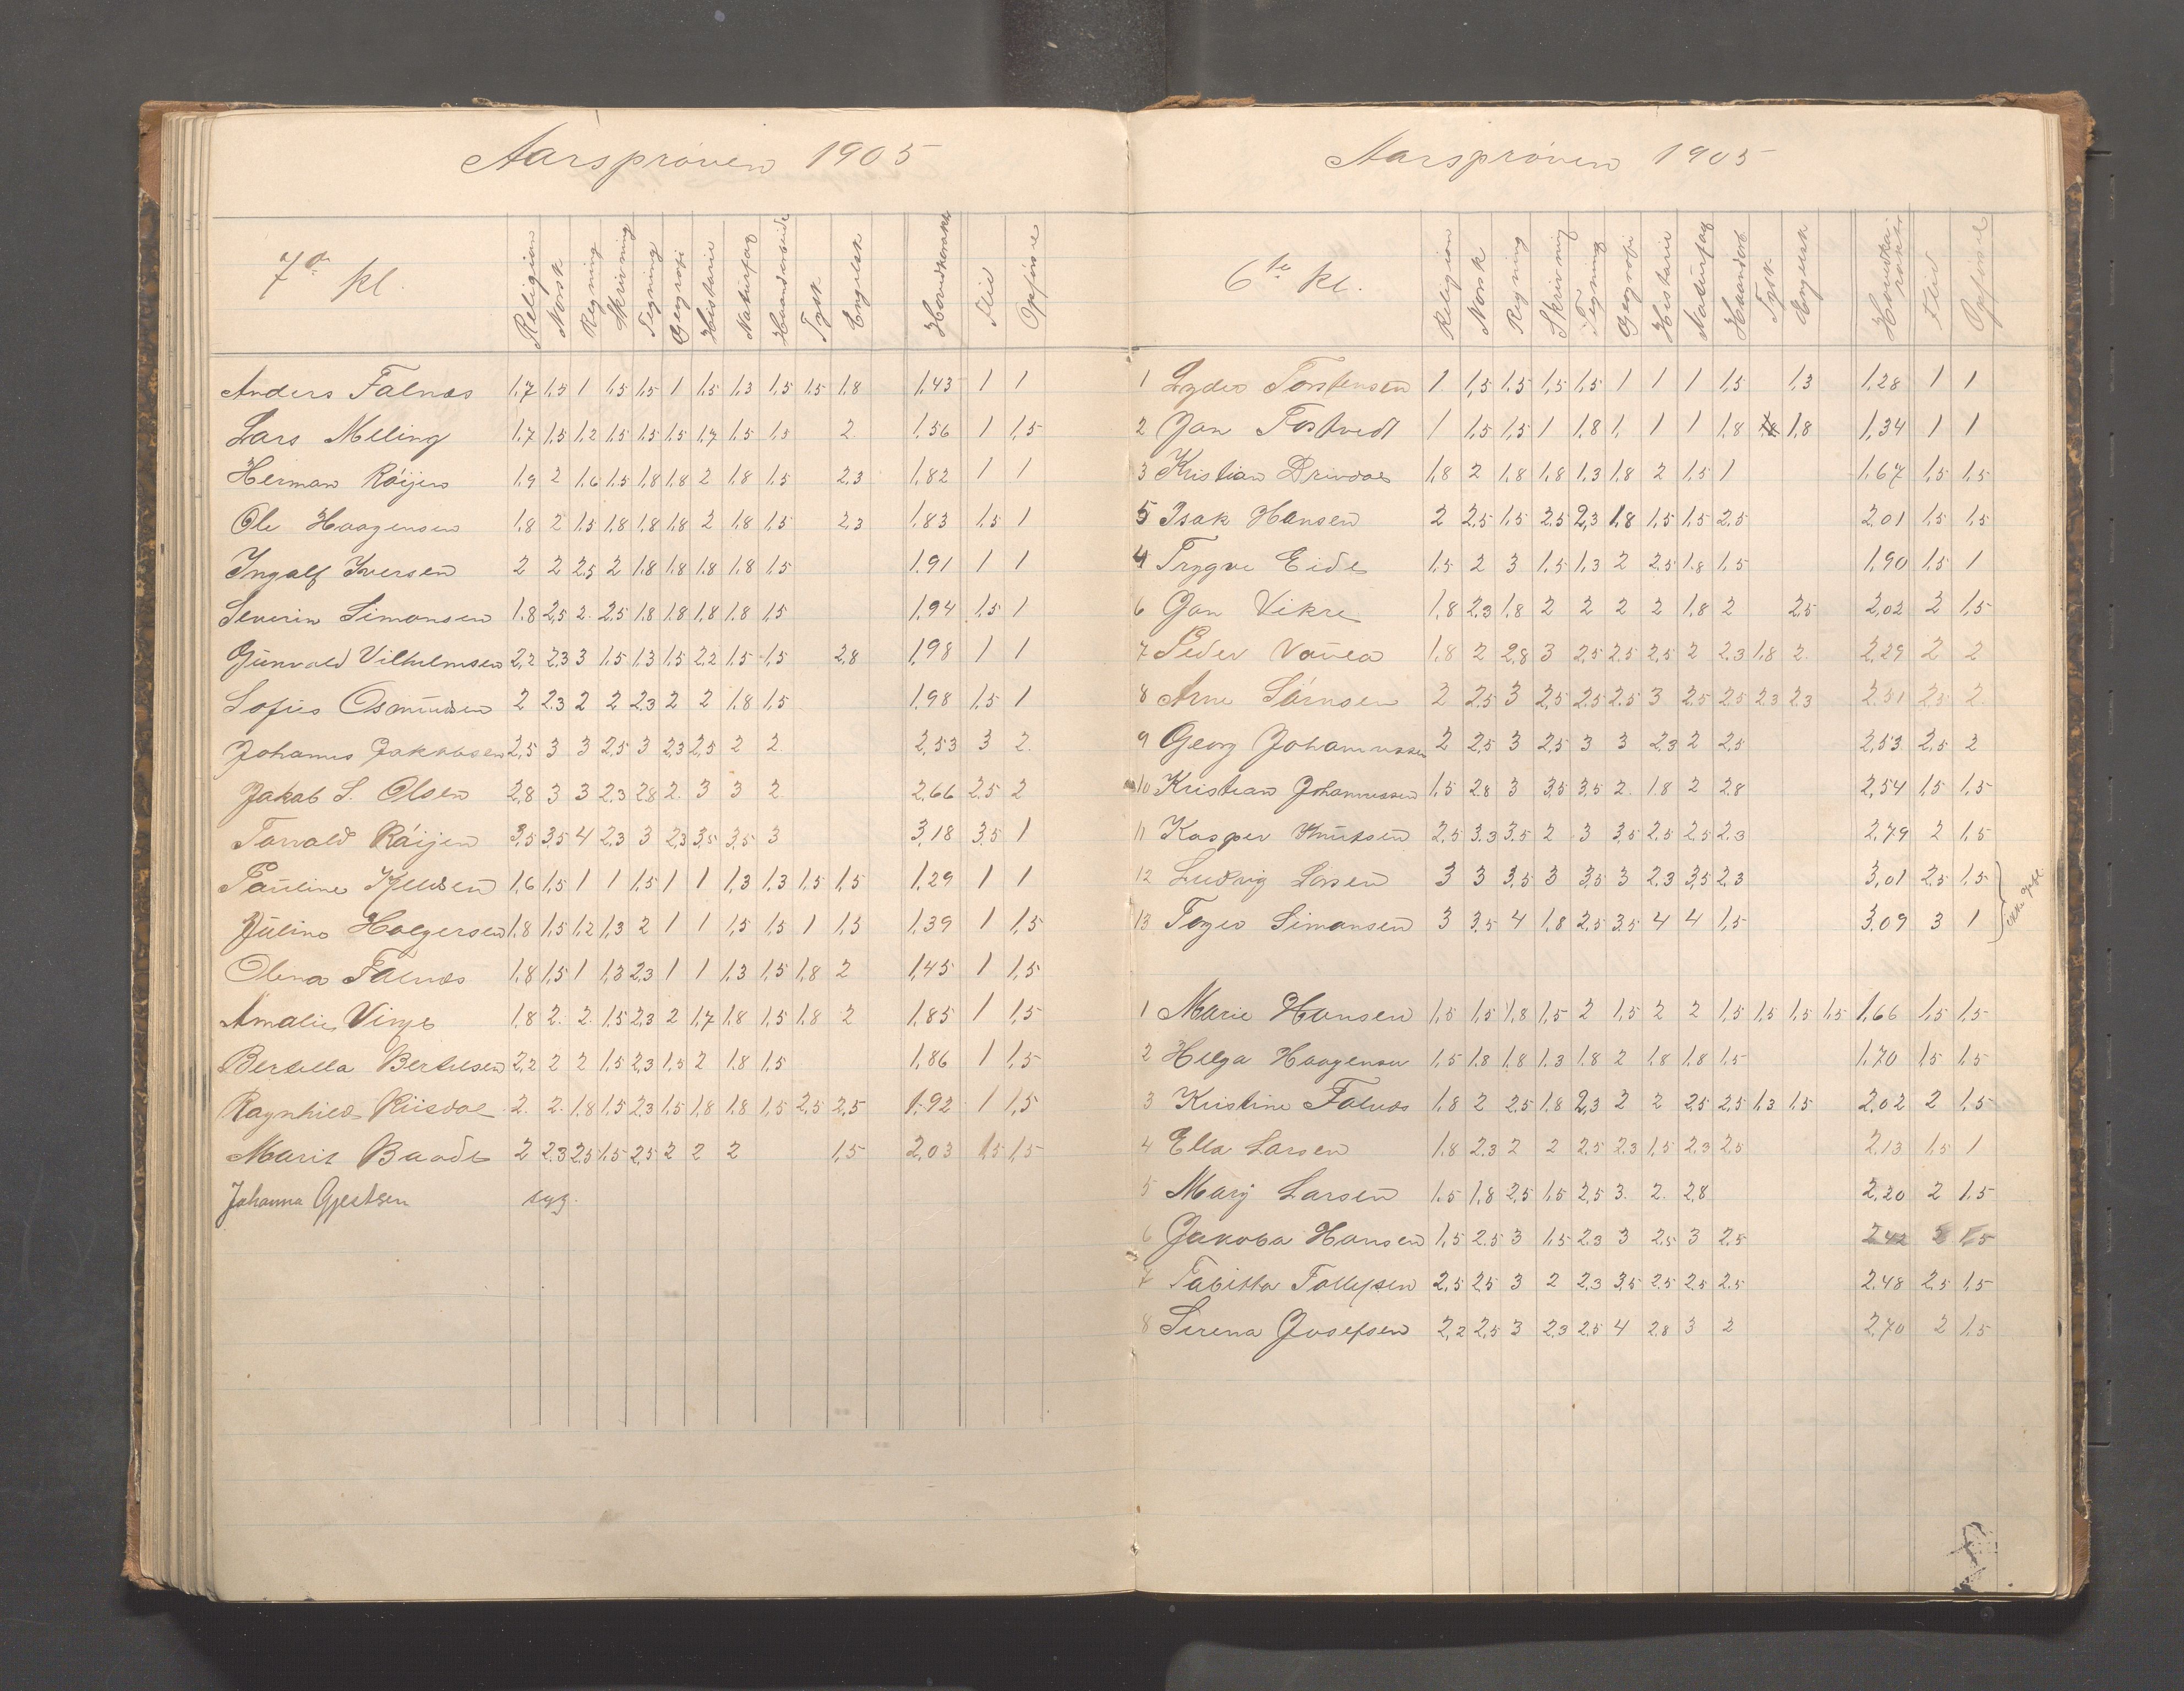 Aarsprøven 1905
7de kl.
Religion Norsk Regning Skrivning Tegning Geografi Historie Naturfag Haandarbeide Tysk Engelsk Hovedkarakt Flid Opførsel
Anders Falnæs 1,7 1,5 1 1,5 1,5 1 1,5 1,3 1,5 1,5 1,8 1,43 1 1
Lars Melling 1,7 1,5 1,2 1,5 1,5 1,5 1,7 1,5 1,5 2 1,56 1 1,5
Herman Røijen 1,9 2 1,6 1,5 1,8 1,8 2 1,8 1,5 2,3 1,82 1 1
Ole Haagensen 1,8 2 1,5 1,8 1,8 1,8 2 1,8 1,5 2,3 1,83 1,5 1
Ingolf Iversen 2 2 2,5 2 1,8 1,8 1,8 1,8 1,5 1,91 1 1
Severin Simonsen 1,8 2,5 2 2,5 1,8 1,8 1,8 1,8 1,5 1,94 1,5 1
Gunvald Vilhelmsen 2,2 2,3 3 1,5 1,3 1,5 2,2 1,5 1,5 2,8 1,98 1 1
Sofus Osmundsen 2 2,3 2 2 2,3 2 2 1,8 1,5 1,98 1,5 1
Johannes Jakobsen 2,5 3 3 2,5 3 2,3 2,5 2 2 2,53 3 2
Jakob S. Olsen 2,8 3 3 2,3 2,8 2 3 3 2 2,66 2,5 2
Torvald Røijen 3,5 3,5 4 2,3 3 2,3 3,5 3,5 3 3,18 3,5 1
Pauline Kjeldsen 1,6 1,5 1 1 1,5 1 1 1,3 1,3 1,5 1,5 1,29 1 1
Juline Holgersen 1,8 1,5 1,2 1,3 2 1 1 1,5 1,5 1 1,3 1,39 1 1,5
Olena Falnæs 1,8 1,5 1 1,3 2,3 1 1 1,3 1,5 1,8 2 1,45 1 1,5
Amalie Vinje 1,8 2 2 1,5 2,3 2 1,7 1,8 1,5 1,8 2 1,85 1 1,5
Bertella Bertelsen 2,2 2 2 1,5 2,3 1,5 2 1,8 1,5 1,86 1 1,5
Ragnhild Riisdal 2 2 1,8 1,5 2,3 1,5 1,8 1,8 1,5 2,5 2,5 1,92 1 1,5
Marie Baade 2 2,3 2,5 1,5 2,5 2 2 2 1,5 2,03 1,5 1,5
Johanna Gjestsen syg.
Aarsprøven 1905
6te kl.
Religion Norsk Regning Skrivning Tegning Geografi Historie Naturfag Haandarb Tysk Engelsk Hovedkarakter Flid Opførsel
1 Lyder Torstensen 1 1,5 1,5 1,5 1,5 1 1 1 1,5 1,3 1,28 1 1
2 Jan Tostvedt 1 1,5 1,5 1 1,8 1 1 1 1,8 1,8 1,8 1,34 1 1
3 Kristian Drivdal 1,8 2 1,8 1,8 1,3 1,8 2 1,5 1 1,67 1,5 1,5
5 Isak Hansen 2 2,5 1,5 2,5 2,3 1,8 1,5 1,5 2,5 2,01 1,5 1,5
4 Trygve Eide 1,5 2 3 1,5 1,3 2 2,5 1,8 1,5 1,90 1,5 1
6 Jan Vikre 1,8 2,3 1,8 2 2 2 2 1,8 2 2,5 2,02 2 1,5
7 Peder Vaula 1,8 2 2,8 3 2,5 2,5 2,5 2 2,3 1,8 2 2,29 2 2
8 Arne Sørnsen 2 2,5 3 2,5 2,5 2,5 3 2,5 2,5 2,3 2,3 2,51 2,5 2
9 Georg Johannessen 2 2,5 3 2,5 3 3 2,3 2 2,5 2,53 2,5 2
10 Kristian Johannessen 1,5 2,8 3 3,5 3,5 2 1,8 2 2,8 2,54 1,5 1,5
11 Kasper Knutsen 2,5 3,3 3,5 2 3 3,5 2,5 2,5 2,3 2,79 2 1,5
12 Ludvig Larsen 3 3 3,5 3 3,5 3 2,3 3,5 2,3 3,01 2,5 1,5
13 Tages Simonsen 3 3,5 4 1,8 2,5 3,5 4 4 1,5 3,09 3 1
1 Marie Hansen 1,5 1,5 1,8 1,5 2 1,5 2 2 1,5 1,5 1,5 1,5 1,66 1,5 1,5
2 Helga Haagensen 1,5 1,8 1,8 1,3 1,8 2 1,8 1,8 1,5 1,70 1,5 1,5
3 Kristine Falnæs 1,8 2 2,5 1,8 2,3 2 2 2,5 2,5 1,3 1,5 2,02 2 1,5
4 Ella Larsen 1,8 2,3 2 2 2,5 2,3 1,5 2,3 2,5 2,13 1,5 1
5 Marij Larsen 1,5 1,8 2,5 1,5 2,5 3 2 2,8 2,20 2 1,5
6 Jakoba Hansen 1,5 2,5 3 1,5 2,3 3 2,5 3 2,5 2,42 1,5
7 Tabitha Tollefsen 2,5 2,5 3 2 2,3 3,5 2,5 2,5 2,5 2,48 2,5 1,5
8 Serena Josefsen 2,2 2,5 3 2,3 2,5 4 2,8 3 2 2,70 2 1,5